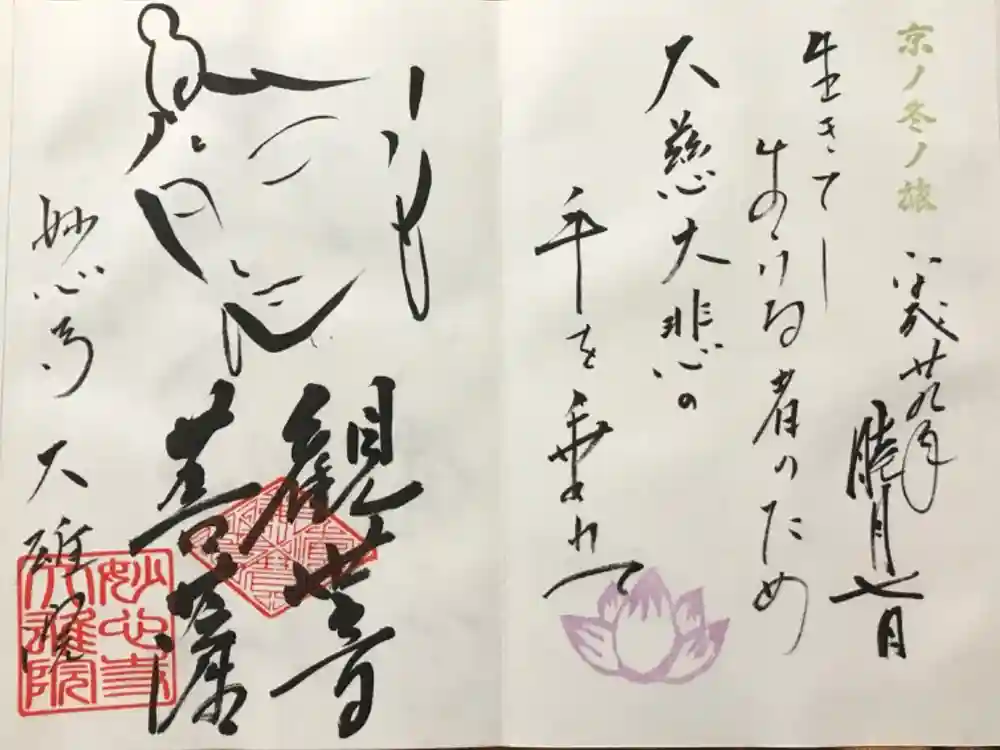 京ノ冬ノ旅
平成廿九年
月七日
生きとし
生ける者のため
大慈大悲の
手を垂れて
観世音
菩薩
妙心寺 大雄院
妙心寺
大雄院